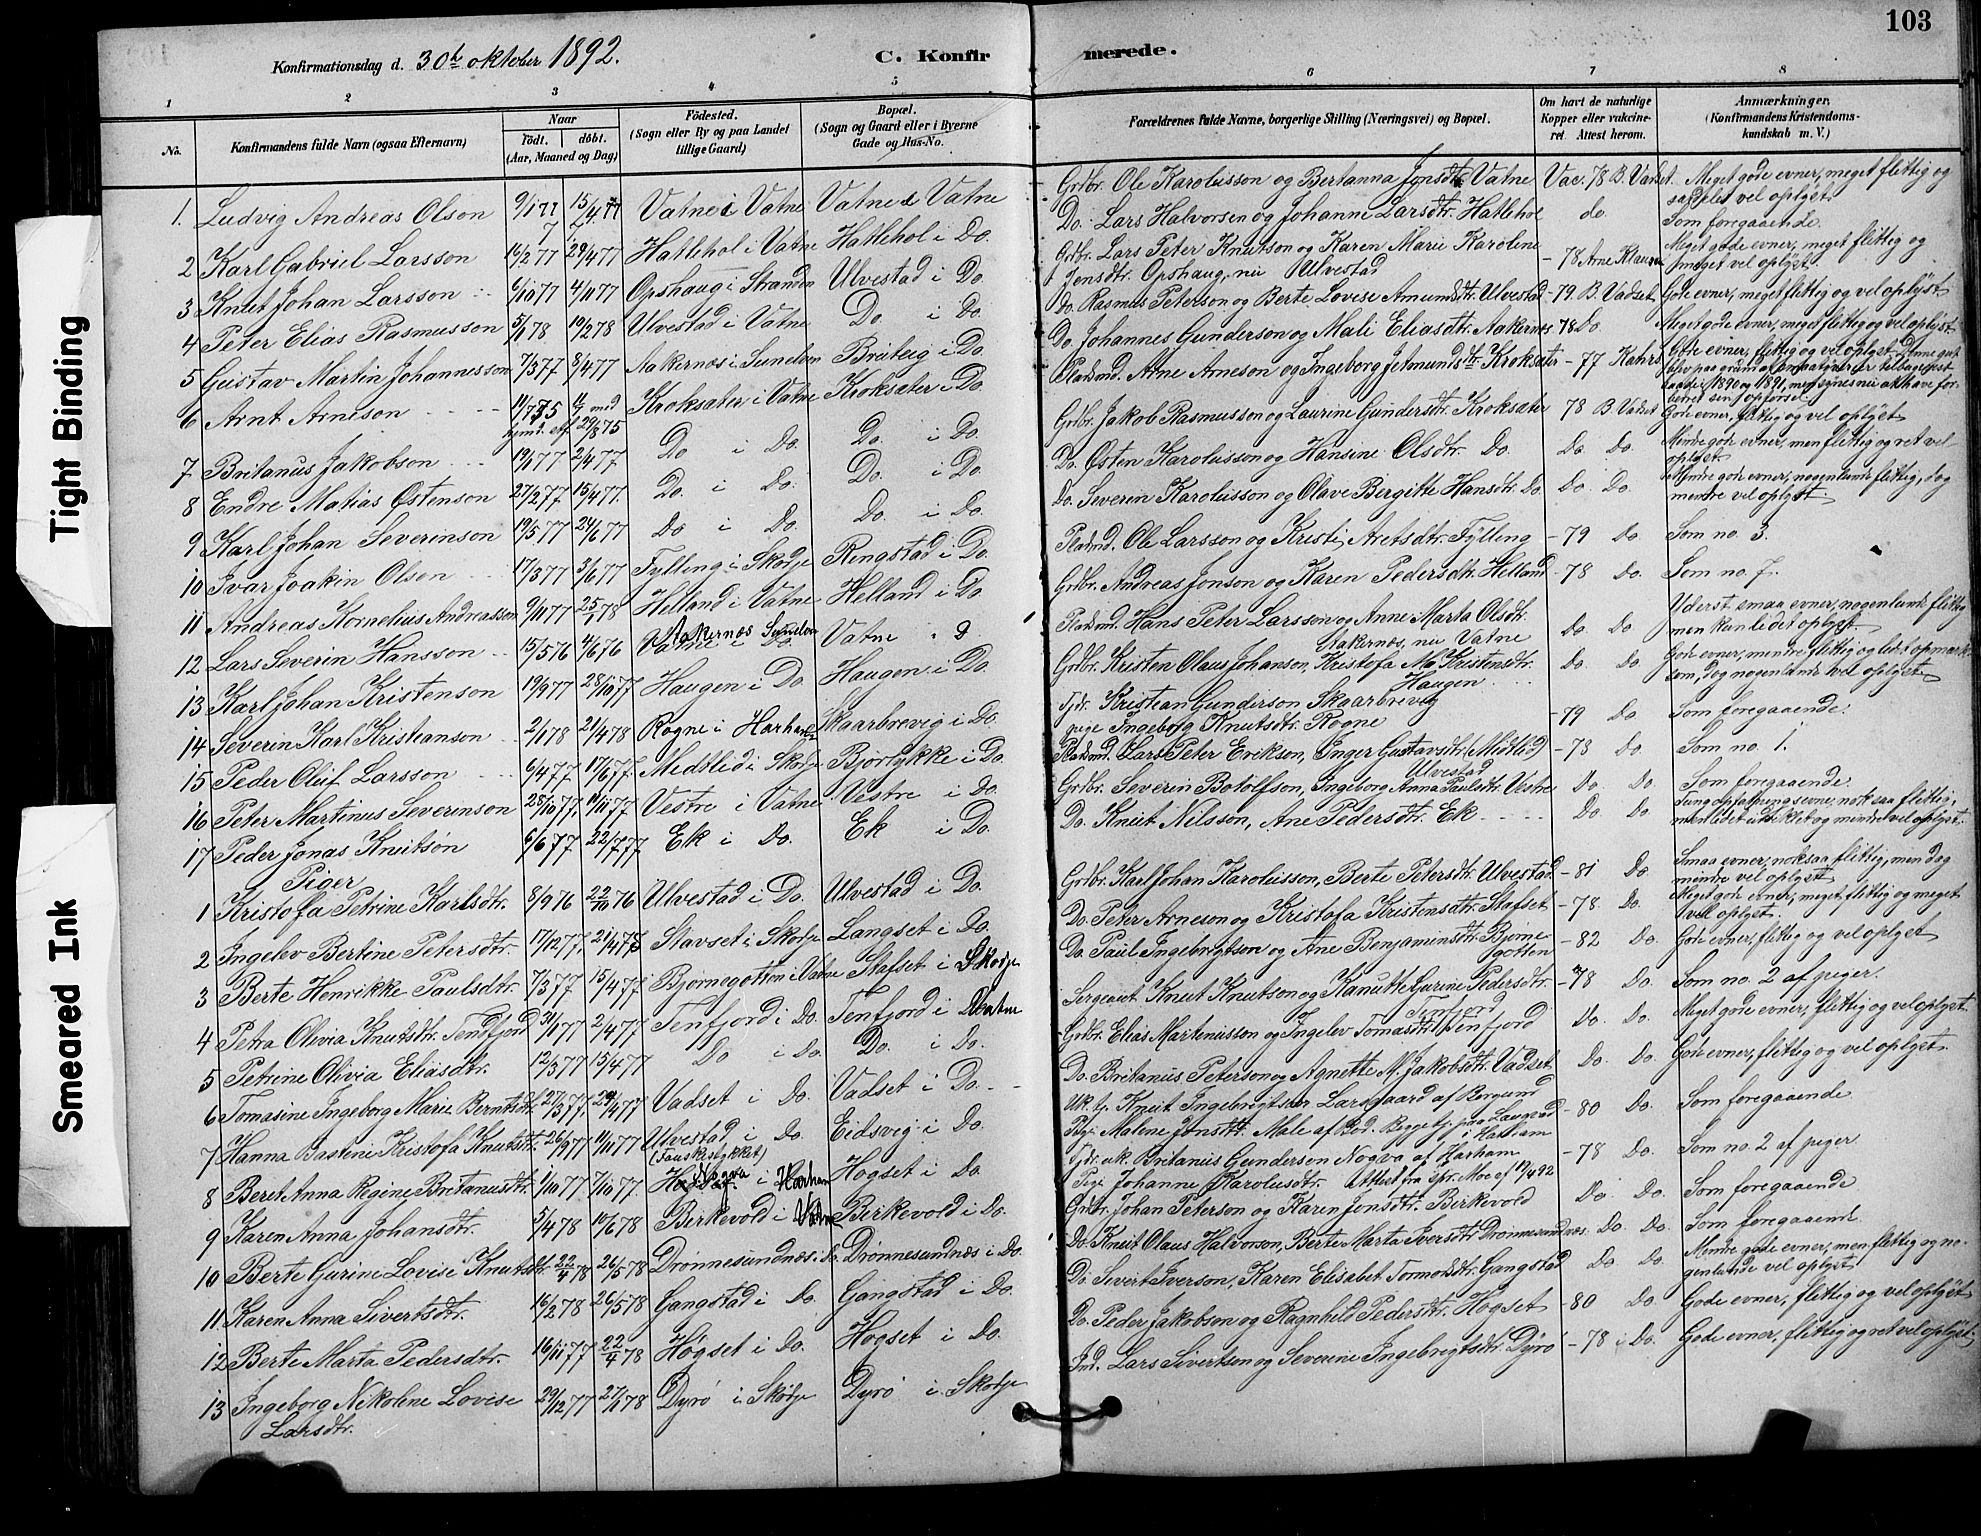 103
Konfirmationsdag d. 30te oktober 1892.
C. Konfirmerede.
1 2 3 4 5 6 7 8
No.
Konfirmandens fulde Navn (ogsaa Efternavn)
Naar
Födt. döbt.
(Aar, Maaned og Dag)
Födested.
(Sogn eller By og paa Landet
tillige Gaard)
Bopæl.
(Sogn og Gaard eller i Byerne
Gade og Hus-No.
Forældrenes fulde Navne, borgerlige Stilling (Næringsvei) og Bopæl.
Om havt de naturlige
Kopper eller vakcine-
ret. Attest herom.
Anmærkninger.
(Konfirmandens Kristendoms-
kundskab m. V.)
Tight Binding
Smeared Ink
1. Ludvig Andreas Olson 9/1 77 15/4 77 Vatne i Vatne Vatne i Vatne Grdbr. Ole Karolusson og Bertanna Jonsdtr. Vatne Vac. 78 B. Vadset. Meget gode evner, meget flittig og
særdeles vel oplyst.
2 Karl Gabriel Larsson 16/2 77 29/4 77 Hatlehol i Vatne Hatlehol i Do. Do. Lars Halvorsen og Johanne Larsdtr. Hatlehol do. Som foregaaende.
3 Knut Johan Larsson 6/10 77 4/11 77 Opshaug i Stranden Ulvestad i Do. Grdbr. Lars Peter Knutson og Karen Marie Karoline
Jensdtr. Opshaug, nu Ulvestad - 78 Arne Klausen Meget gode evner, meget flittig og
meget vel oplyst.
4 Peter Elias Rasmusson 5/1 78 10/2 78 Ulvestad i Vatne Do. i Do. Do. Rasmus Peterson og Berte Lovise Amundsdtr. Ulvestad - 79 B. Vadset Gode evner, meget flittig og vel oplyst
5 Gustav Martin Johannesson 7/3 77 8/4 77 Aakernæs i Sundem Breiteig i Do. Do. Johannes Gunderson og Mali Eliasdtr. Aakernes 78 Do. Meget gode evner, meget flittig og vel oplyst.
6 Arnt Arneson 11/7 75 hjemd. stf. 29/8 75 Kroksæter i Vatne Kroksæter i Do. Pladsmd. Arne Arneson og Ingeborg Jetmundsdtr. Kroksæter - 77 Gode evner, flittig og vel oplyst. Denne gut
blev paa grund af tilbagevist
baade i 1890 og 1891, men synes nu at have for-
bedret sin opførsel.
7 Britanus Jakobson 19/1 77 2/4 77 Do i Do. Do. i Do. Grdbr. Jakob Rasmusson og Laurine Gundersdtr. Kroksæter 78 B. Vadset Gode evner, flittig og vel oplyst
8 Endre Matias Østenson 27/2 77 15/4 77. Do. i Do. Do. i Do. Do. Østen Karolusson og Hansine Olsdtr. Do. Do. Do. Mindre gode evner, men flittig og ret vel
oplyst.
9 Karl Johan Severinson 19/5 77 24/6 77 Do i Do. Do. i Do. Do. Severin Karolusson og Olave Birgitte Hansdtr. Do. Do. Do. Mindre gode evner, nogenlunde flittig, dog
mindre vel oplyst.
10 Ivar Joakin Olson 17/3 77 3/6 77 Fylling i Skodje Ringstad i Do. Pladsmd. Ole Larsson og Kristi Aretsdtr. Fylling - 79 Do. Som no. 3.
11 Andreas Kornelius Andreasson 9/11 77 25/1 78 Helland i Vatne Helland i Do Grdbr. Andreas Jonson og Karen Pedersdtr. Helland - 78 Do. Som no. 7.
12 Lars Severin Hansson 15/5 76 4/6 76 Aakernæs Sundem Vatne i Do. Vatne Pladsmd. Hans Peter Larsson og Anne Marta Olsdtr.
Aakernæs, nu Vatne Do. Do Yderst smaa evner, nogenlunde flittig
men kun lidet oplyst.
13 Karl Johan Kristenson 19/9 77 28/10 77 Haugen i Do. Haugen i Do. Grdbr. Kristen Olaus Johanson, Kristofa Ma. Kristensdtr.
Haugen Do. Do Gode evner, mindre flittig og lidet opmærk-
som, dog nogenlunde vel oplyst.
14 Severin Karl Kristianson 2/1 78 21/4 78 Rogne i Harham Skaarbrevig i Do. Tjdr. Kristian Gunderson Skaarbrevig
pige Ingeborg Knutsdtr. Rogne - 79 Do Som foregaaende.
15 Peder Oluf Larsson 6/4 77. 17/6 77. Midtlid i Skodje Bjørlykke i Do. Pladsmd. Lars Peter Erikson, Inger Gustavsdtr. (Midtlid)
Ulvestad - 78 Do. Som no. 1.
16 Peter Martinus Severinson 28/10 77. 11/11 77 Vestre i Vatne Vestre i Do Grdbr. Severin Botolfson, Ingeborg Anna Paulsdtr. Vestre Do Do. Som foregaaende
17 Peder Jonas Knutson 6/6 77 22/7 77 Ek i Do. Ek i Do. Do. Knut Nilsson, Ane Pedersdtr. Ek Do Do. Tung opfatningsevne, nok saa flittig,
men lidet udviklet og mindre vel oplyst.
Piger
1 Kristofa Petrine Karlsdtr. 8/9 76 22/10 76 Ulvestad i Do. Ulvestad i Do. Grdbr. Karl Johan Karolusson, Berte Petersdtr. Ulvestad - 81 Do. Smaa evner, noksaa flittig, men dog
mindre vel oplyst
2 Ingelev Bertine Petersdtr. 17/12 77. Stavset i Skodje Langset i Do. Do. Peter Arneson og Kristofa Kristensdtr. Stafset - 78 Do. Meget gode evner, meget flittig og meget
vel oplyst.
3 Berte Henrikke Paulsdtr. 7/3 77 15/4 77 Bjørnegotten i Vatne Stafset i Skodje Do Paul Ingebrigtson og Ane Benjaminsdtr. Bjørne-
gotten - 82 Do. Gode evner, flittig og vel oplyst
4 Petra Olivia Knutsdtr. Tennfjord 31/1 77 2/4 77 Tenfjord i Do. Tenfjord i Vatne Sergeant Knut Knutson og Hanutte Gurine Pedersdtr.
Tenfjord - 78 Do. Som no. 2 af piger.
5 Petrine Olivia Eliasdtr. 12/3 77 15/4 77 Do i Do. Do. i Do. Grdbr. Elias Martinusson og Ingelev Tomasdtr. Tenfjord Do. Do. Meget gode evner, flittig og vel oplyst.
6 Tomasine Ingeborg Marie Berntsdtr. 27/3 77. 29/4 77 Vadset i Do. Vadset i Do. Do. Britanus Peterson og Agnette M. Jakobsdtr. Vadset Do. Do. Gode evner, flittig og vel oplyst.
7 Hanna Bastine Kristofa Knutsdtr. 26/9 77 11/11 77 Ulvestad i Do Eidsvig i Do. Uk. tj. Knut Ingebrigtsen Larsgaard af Borgund
Pige Malene Jonsdtr. Male af Bod. Begge tj. paa Laugvad
i Harham - 80 Do. Som foregaaende
8 Beret Anna Regine Britanusdtr. 1/10 77 7/10 77. Nogva i Harham Hogset i Do. Tjdr. uk. Britanus Gunderson Nogva af Harham
Pige Johanne Karolusdtr. Attest fra spr. Moe af 19/4 92 - 78 Do. Som no. 2 af piger
9 Karen Anna Johansdtr. 5/4 78 10/6 78 Birkevold i Vatne Birkevold i Do. Grdbr. Johan Peterson og Karen Jonsdtr. Birkevold Do. Do. Som foregaaende
10 Berte Gurine Lovise Knutsdtr. 22/4 78 26/5 78 Drønnesundnæs i Do. Drønnesundnæs i Do. Do. Knut Olaus Halvorson, Berte Marta Iversdtr. Drønnesundnæs Do. Do. Som foregaaende
11 Karen Anna Sivertsdtr. 16/2 78 26/5 78 Gangstad i Do. Gangstad i Do. Do Sivert Iverson, Karen Elisabet Tormodsdtr. Gangstad Do Do. Mindre gode evner, men flittig og no-
genlunde vel oplyst
12 Berte Marta Pedersdtr. 16/11 77 22/4 78 Høgset i Do. Høgset i Do. Do. Peder Jakobson og Ragnhild Pedersdtr. Høgset - 80 Do. Gode evner, flittig og vel oplyst
13 Ingeborg Nikoline Lovise 29/12 77 27/1 78 Dyrø i Skodje Dyrø i Skodje Ind. Lars Sivertson og Severine Ingebrigtsdtr. Dyrø - 78 Do. Gode evner, flittig og ret vel oplyst.
Larsdtr.